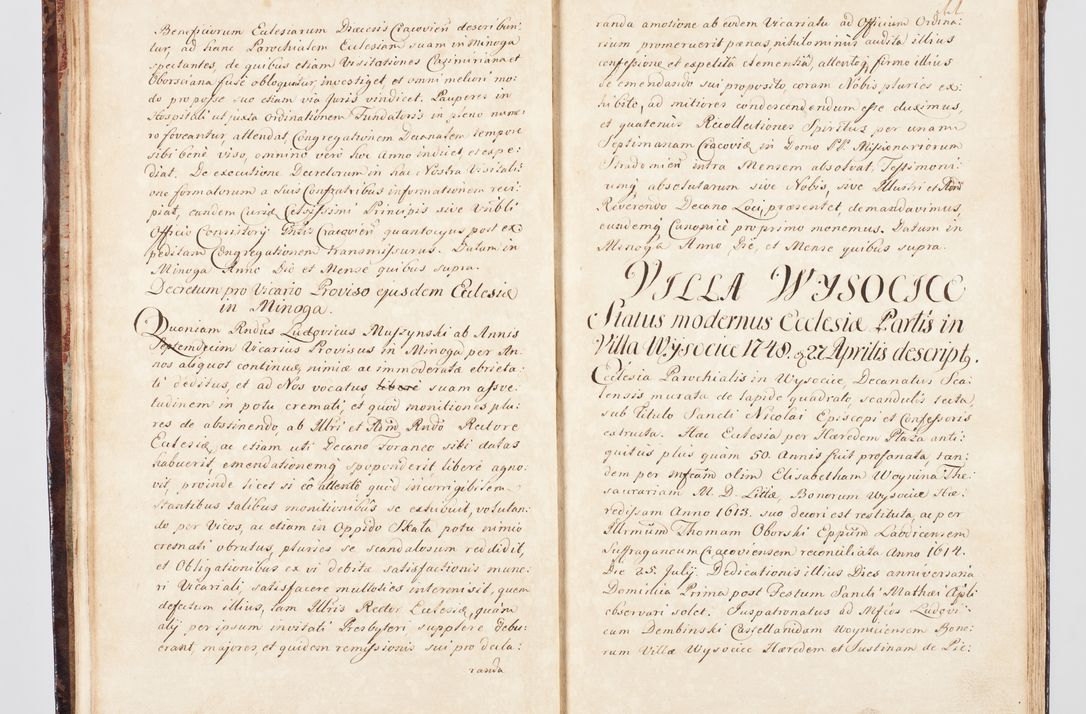 Beneficiorum Eclesiarum Diæcesis Cracovien describun:
tur, ad hanc Parochialem Ecclesiam suam in Minoga
spectantes, de quibus etiam Visitationes Casimiriana et
Oborsciana fusè obloquatur, investiget, et omni meliori mo:
do pro posse suo etiam via Juris vindicet. Pauperes in
Hospitali ut juxta Ordinationem Fundatoris in pleno nume:
ro foveantur, attendat, Congregationem Decanalem tempore
sibi benè viso, omninò verò hoc Anno indicet et expe:
diat. De executione Decretorum in hac Nostra Visitati:
one formatorum a suis Confratribus informationem reci:
piat, eandem Curiæ Celsissimi Principis sive Vribli
Officio Consistorij Gnlis Cracovien quantocyus post ex:
peditam Congregationem transmissurus. Datum in
Minoga Anno Die et Mense quibus supra.
Decretum pro Vicario Proviso ejusdem Eclesiæ
in Minoga.
Quoniam Rndus Ludovicus Muszynski ab Annis
Septemdecim Vicarius Provisus in Minoga per An:
nos aliquot continuæ, nimiæ ac immoderatæ ebrieta:
ti deditus, et ad Nos vocatus, liberè suam assve:
tudinem in potu cremati, et quòd monitiones plu:
res de abstinendo, ab Illri et Adm Rndo Rectore
Eclesiæ, ac etiam uti Decano Foraneo sibi datas
habuerit, emendationemq spoponderit liberè agno:
vit, proinde licet si eò attentè quod incorrigibilem
stantibus talibus monitionibus se exhibuit, volutan:
do per Vicos, ac etiam in Oppido Skala potu nimio
cremati obrutus, pluries se scandalosum reddidit,
et Obligationibus ex vi debitæ satisfactionis mune:
ri Vicariali satisfacere multoties intermisit, quem
defectum illius, tam Illris Rector Eclesiæ, quàm
alij per ipsum invitati Presbyteri supplere debu:
erant, majores, et quidem remissionis sui pro decla:
randa
randa amotione ab eodem Vicariatu ad Officium Ordina:
rium promeruerit pænas, nihilominùs audita illius
confessione et expetitâ clementiâ, attentoq firmo illius
de emendando sui proposito coram Nobis pluries ex:
hibito, ad mitiores condescendendum esse duximus,
et quatenùs Recollectiones Spiritûs per unam
Septimanam Cracoviæ in Domo PP. Missionariorum
Stradomien intra Mensem absolvat, Testimoni:
umq absolutarum sive Nobis, sive Illustri et Adm
Reverendo Decano Loci, præsentet, demandavimus,
eundemq Canonicè pro primo monemus. Datum in
Minoga Anno, Die, et Mense quibus supra.
VILLA WYSOCICE
Status modernus Ecclesiæ Partis in
Villa Wysocice 1748. 27 Aprilis descript.
Ecclesia Parochialis in Wysocice, Decanatus Sca:
lensis murata de lapide quadrato, scandulis tecta,
sub titulo Sancti Nicolai Episcopi et Confessoris
extructa. Hæc Eclesia per Hæredem Płaza anti:
quitus plus quàm 50. Annis fuit profanata, tan:
dem per Mfcam olim Elisabetham Woynina The:
saurariam M. D. Littæ, Bonorum Wysocice Hæ:
redissam Anno 1613. suo decori est restituta, ac per
Illrmum Thomam Oborski Eppum Laodicensem
Suffraganeum Cracoviensem reconciliata Anno 1614.
Die 25. Julij. Dedicationis illius Dies anniversaria
Dominica Prima post Festum Sancti Mathæi Apli
observari solet. Juspatronatus ad Mfcos Ludovi:
cum Dembinski Castellanidam Woyniciensem Bono:
rum Villæ Wysocice Hæredem et Justinam de Pie: